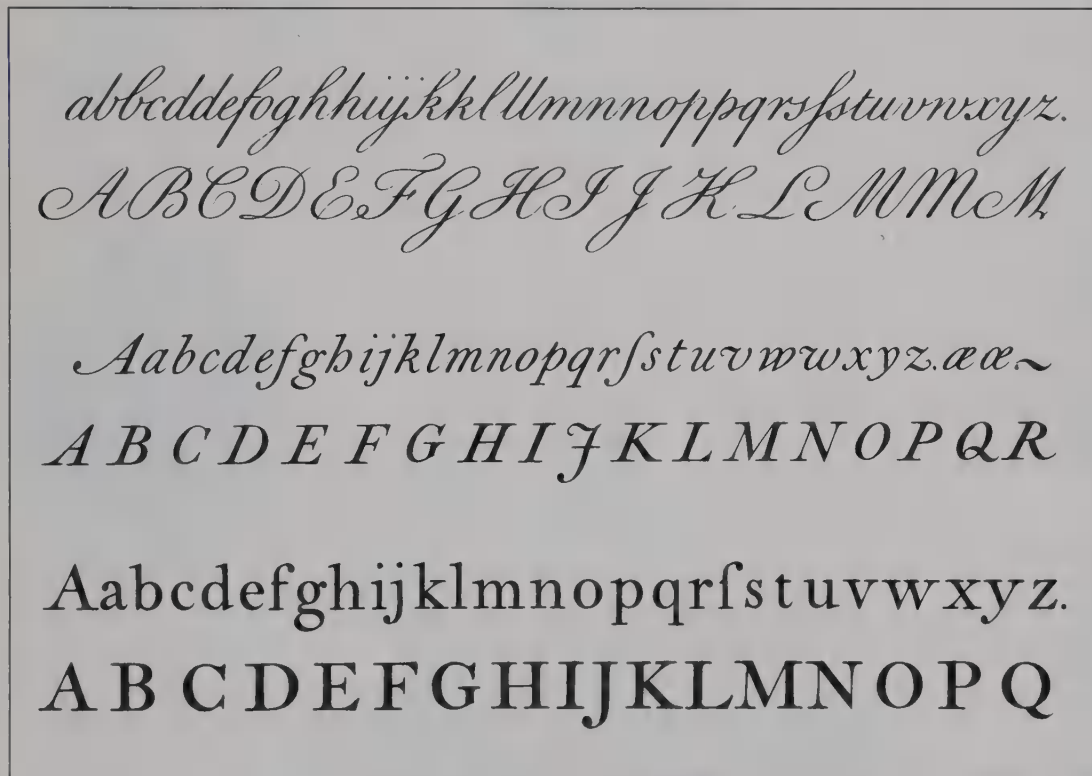 abbcddefoghhiijkkklllmnnoppqrsſstuvnwxyz.
ABCDEFGHIJKLMMM
Aabcdefghijklmnopqrſstuvwwxyz.ææ~
ABCDEFGHIJKLMNOPQR
Aabcdefghijklmnopqrſstuvwxyz.
ABCDEFGHIJKLMNOPQ